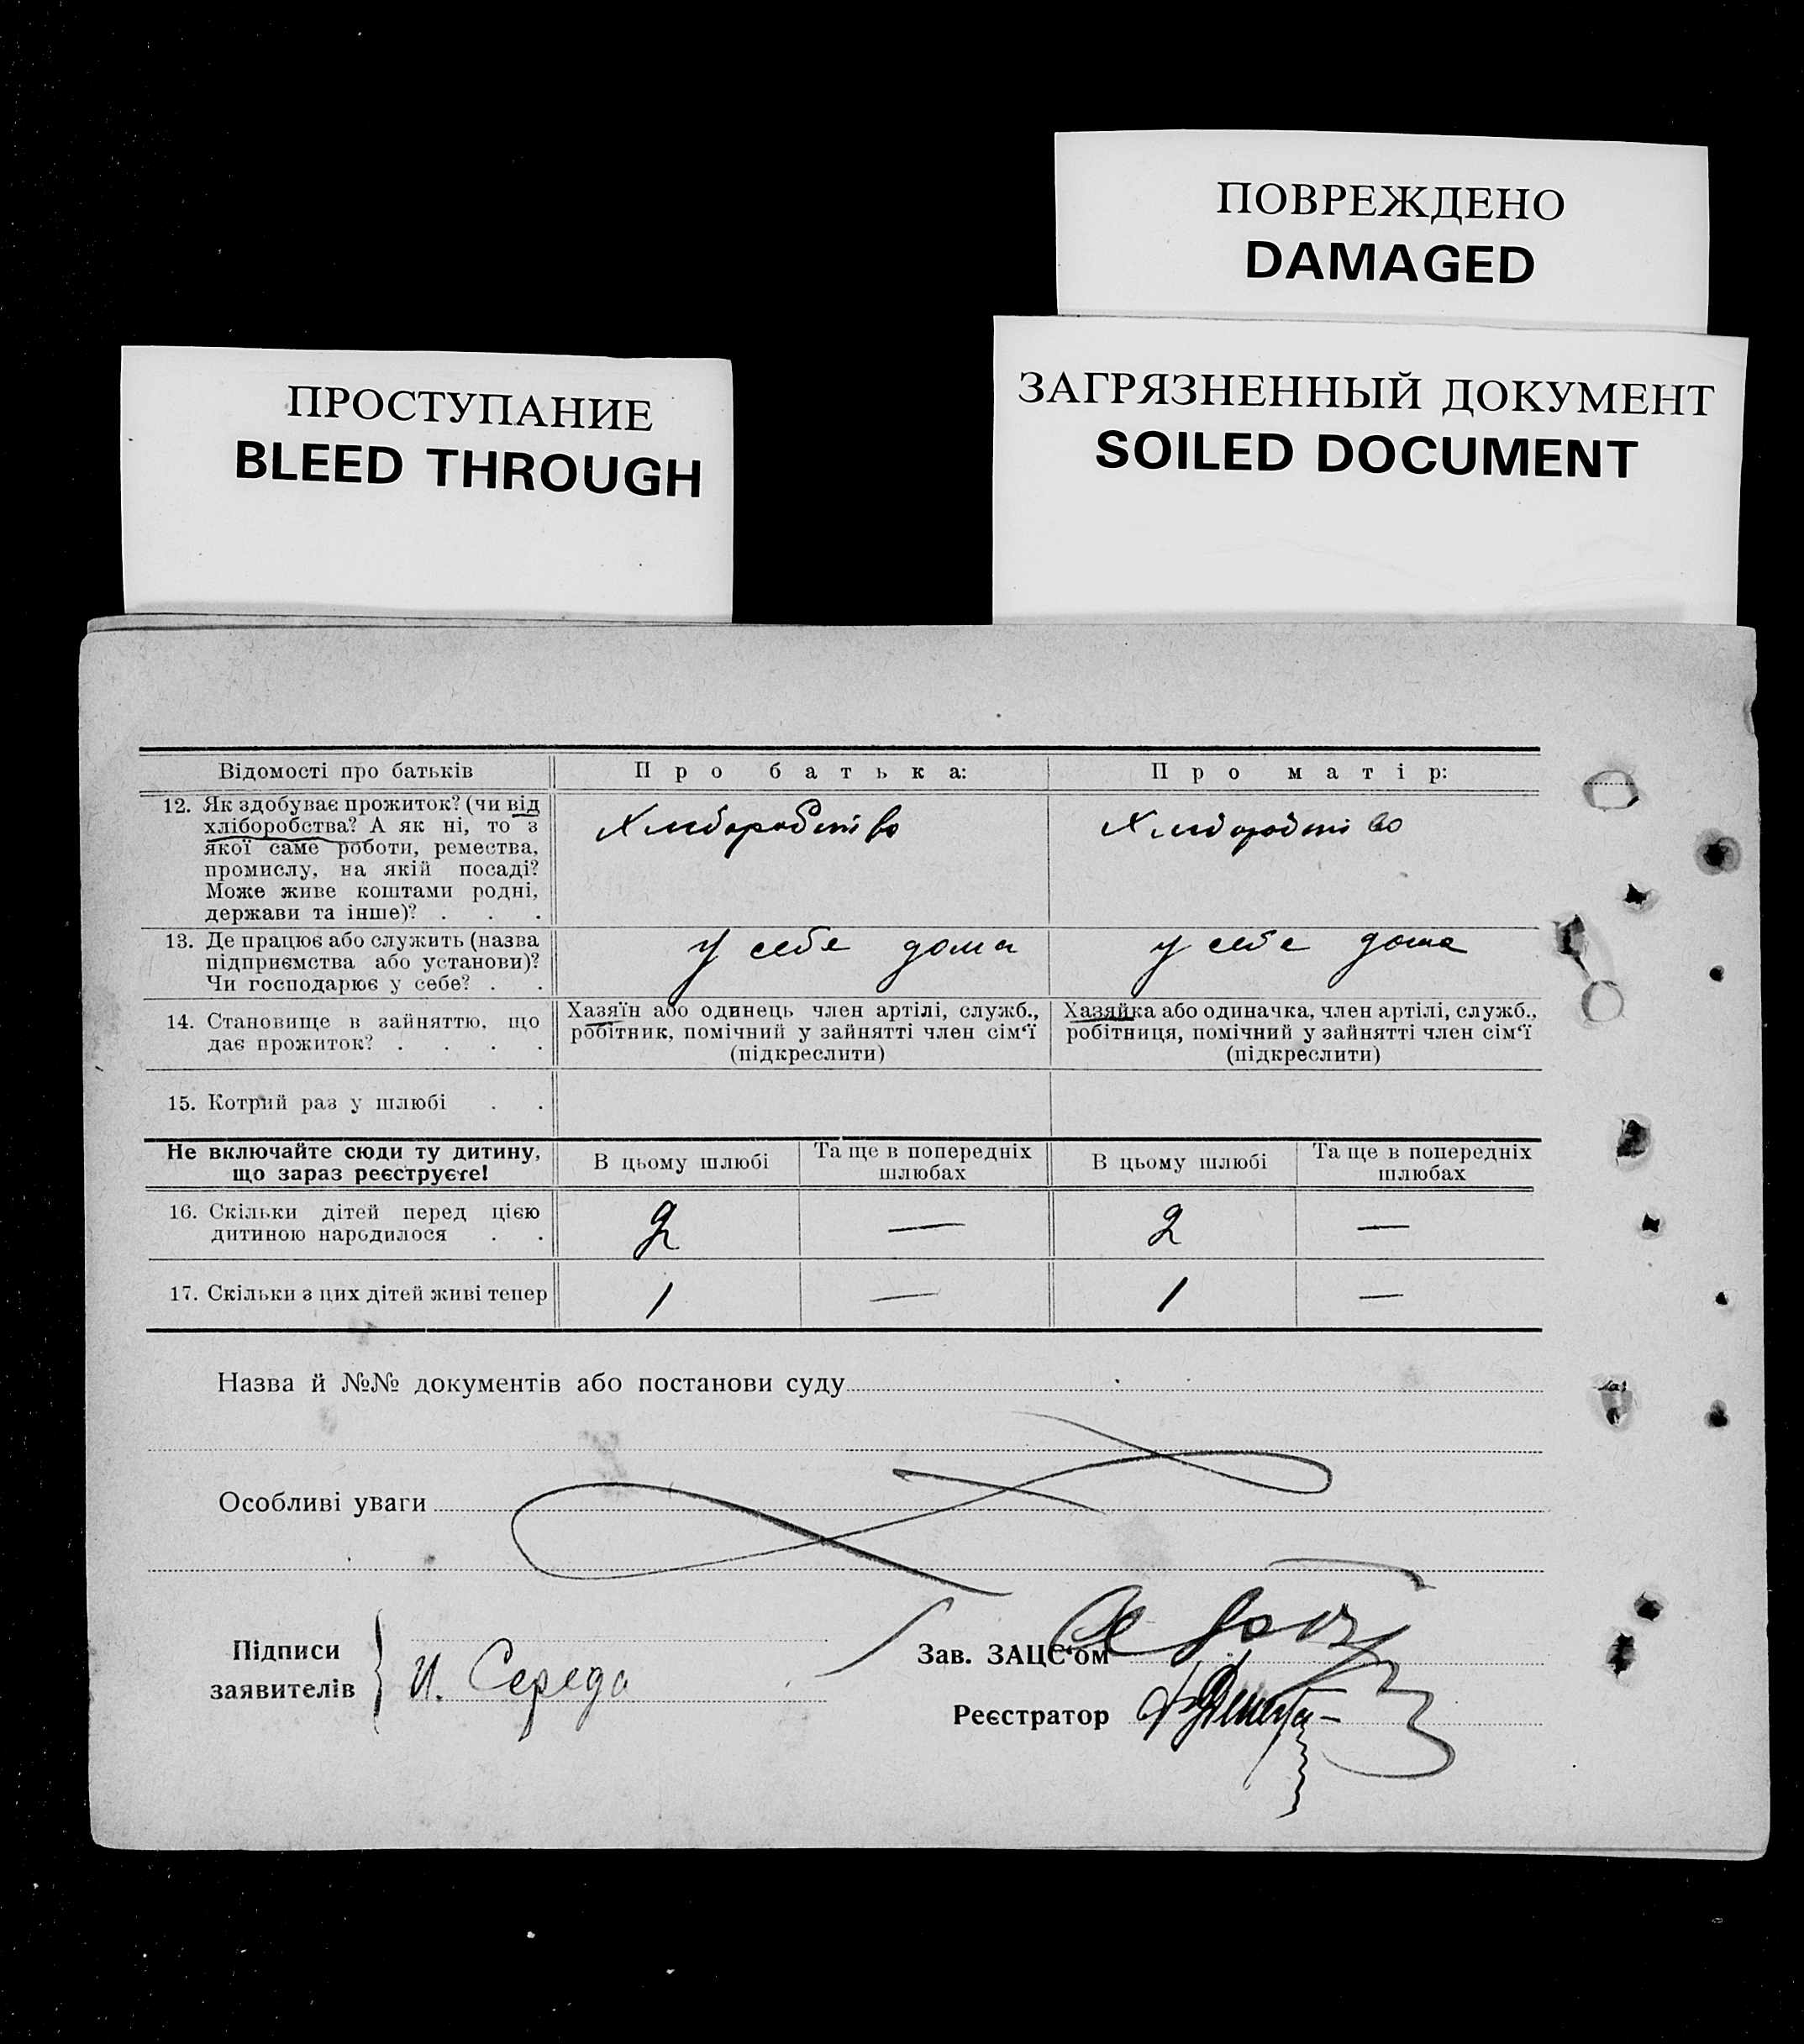 ПОВРЕЖДЕНО
DAMAGED
ПРОСТУПАНИЕ
BLEED THROUGH
ЗАГРЯЗНЕННЫЙ ДОКУМЕНТ
SOILED DOCUMENT
Відомості про батьків
Про батька:
Про матір:
12. Як здобуває прожиток? (чи від
хліборобства? А як ні, то з
якої саме роботи, ремества,
промислу, на якій посаді?
Може живе коштами родні,
держави та інше)? . . .
Хліборобство
Хліборобство
13. Де працює або служить (назва
підприємства або установи)?
Чи господарює у себе? . .
у себе дома
у себе дома
14. Становище в зайняттю, що
дає прожиток? . . . .
Хазяїн або одинець член артілі, служб.,
робітник, помічний у зайнятті член сім'ї
(підкреслити)
Хазяйка або одиначка, член артілі, служб.,
робітниця, помічний у зайнятті член сім'ї
(підкреслити)
15. Котрий раз у шлюбі . .
Не включайте сюди ту дитину,
що зараз реєструєте!
В цьому шлюбі
Та ще в попередніх
шлюбах
В цьому шлюбі
Та ще в попередніх
шлюбах
16. Скільки дітей перед цією
дитиною народилося . .
2 — 2 —
17. Скільки з цих дітей живі тепер
1 — 1 —
Назва й №№ документів або постанови суду
Особливі уваги
Підписи
заявителів
И. Середа
Зав. ЗАЦС'ом
Реєстратор